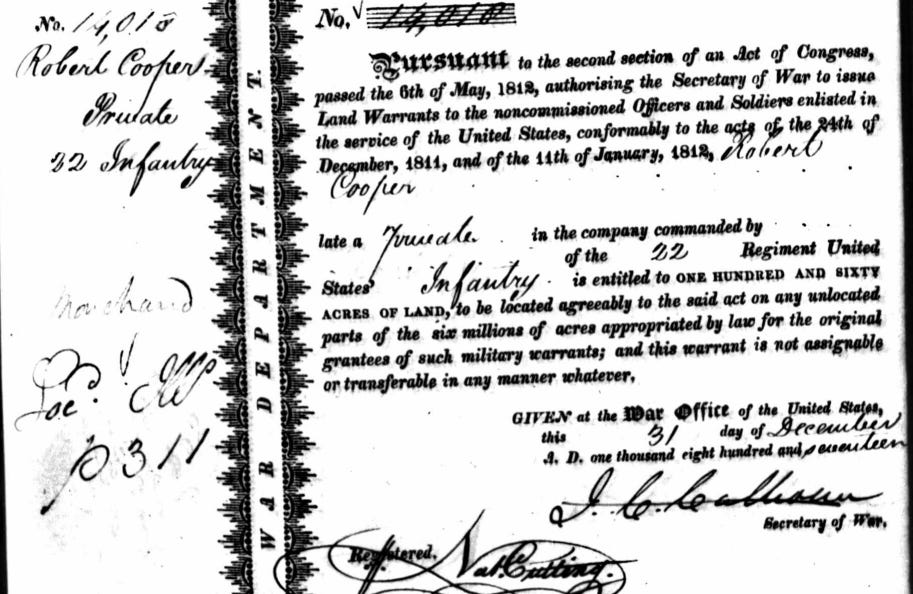 No. 14,018
Robert Cooper
Private
22 Infantry
Loc.
p 311
WAR DEPARTMENT.
No. 14,018
Pursuant to the second section of an Act of Congress,
passed the 6th of May, 1812, authorising the Secretary of War to issue
Land Warrants to the noncommissioned Officers and Soldiers enlisted in
the service of the United States, conformably to the acts of the 24th of
December, 1811, and of the 11th of January, 1812, Robert
Cooper
late a Private in the company commanded by
of the 22 Regiment United
States' Infantry is entitled to ONE HUNDRED AND SIXTY
ACRES OF LAND, to be located agreeably to the said act on any unlocated
parts of the six millions of acres appropriated by law for the original
grantees of such military warrants; and this warrant is not assignable
or transferable in any manner whatever.
GIVEN at the War Office of the United States,
this 31 day of December
A. D. one thousand eight hundred and seventeen
J. C. Calhoun
Secretary of War.
Registered.
Nat. Cutting.